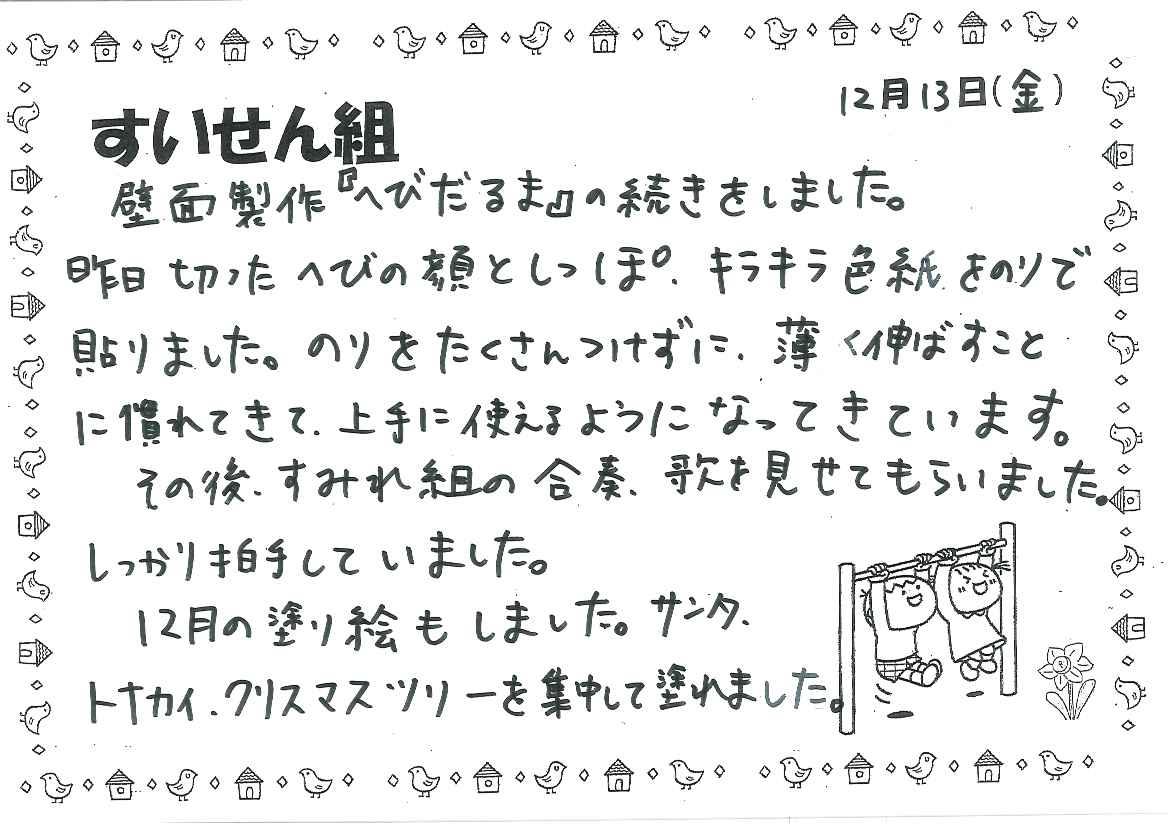 12月13日(金)
すいせん組
壁面製作『へびだるま』の続きをしました。
昨日切ったへびの顔としっぽ、キラキラ色紙をのりで
貼りました。のりをたくさんつけずに、薄く伸ばすこと
に慣れてきて、上手に使えるようになってきています。
その後、すみれ組の合奏、歌を見せてもらいました。
しっかり拍手していました。
12月の塗り絵もしました。サンタ、
トナカイ、クリスマスツリーを集中して塗れました。